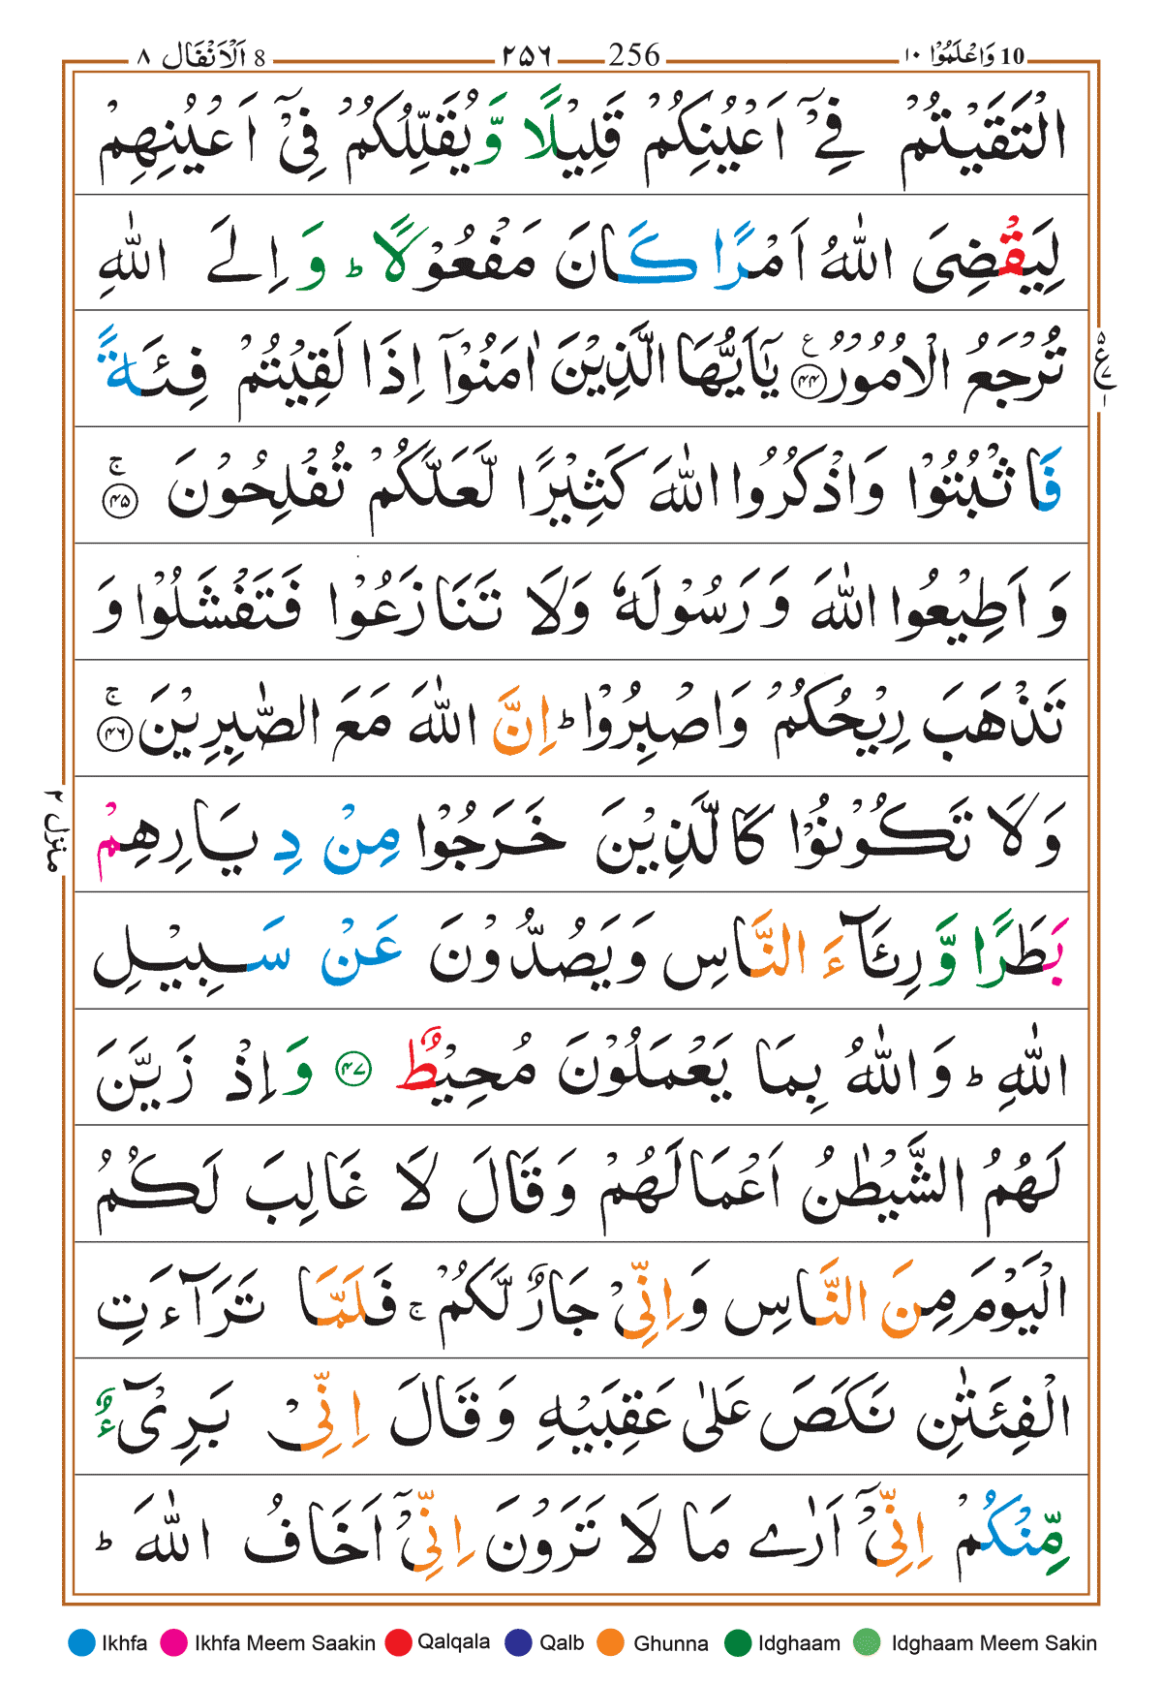 10 وَاعْلَمُوْۤا ١٠ 256 ٢٥٦ 8 اَلْاَنْفَال ٨
الْتَقَيْتُمْ فِيْۤ اَعْيُنِكُمْ قَلِيْلًا وَّيُقَلِّلُكُمْ فِيْۤ اَعْيُنِهِمْ
لِيَقْضِىَ اللّٰهُ اَمْرًا كَانَ مَفْعُوْلًا ؕ وَ اِلَى اللّٰهِ
تُرْجَعُ الْاُمُوْرُ ﴿۴۴﴾ ع يٰۤاَيُّهَا الَّذِيْنَ اٰمَنُوْۤا اِذَا لَقِيْتُمْ فِئَةً
فَاثْبُتُوْا وَاذْكُرُوا اللّٰهَ كَثِيْرًا لَّعَلَّكُمْ تُفْلِحُوْنَ ۚ ﴿۴۵﴾
وَ اَطِيْعُوا اللّٰهَ وَ رَسُوْلَهٗ وَلَا تَنَازَعُوْا فَتَفْشَلُوْا وَ
تَذْهَبَ رِيْحُكُمْ وَاصْبِرُوْا ؕ اِنَّ اللّٰهَ مَعَ الصّٰبِرِيْنَ ۚ ﴿۴۶﴾
وَلَا تَكُوْنُوْا كَالَّذِيْنَ خَرَجُوْا مِنْ دِيَارِهِمْ
بَطَرًا وَّ رِئَآءَ النَّاسِ وَيَصُدُّوْنَ عَنْ سَبِيْلِ
اللّٰهِ ؕ وَاللّٰهُ بِمَا يَعْمَلُوْنَ مُحِيْطٌ ﴿۴۷﴾ وَ اِذْ زَيَّنَ
لَهُمُ الشَّيْطٰنُ اَعْمَالَهُمْ وَقَالَ لَا غَالِبَ لَكُمُ
الْيَوْمَ مِنَ النَّاسِ وَاِنِّيْ جَارٌ لَّكُمْ ۚ فَلَمَّا تَرَآءَتِ
الْفِئَتٰنِ نَكَصَ عَلٰى عَقِبَيْهِ وَقَالَ اِنِّيْ بَرِيْٓءٌ
مِّنْكُمْ اِنِّيْۤ اَرٰى مَا لَا تَرَوْنَ اِنِّيْۤ اَخَافُ اللّٰهَ ؕ
۵ ع ٧ ١
منزل ٢
Ikhfa Ikhfa Meem Saakin Qalqala Qalb Ghunna Idghaam Idghaam Meem Sakin